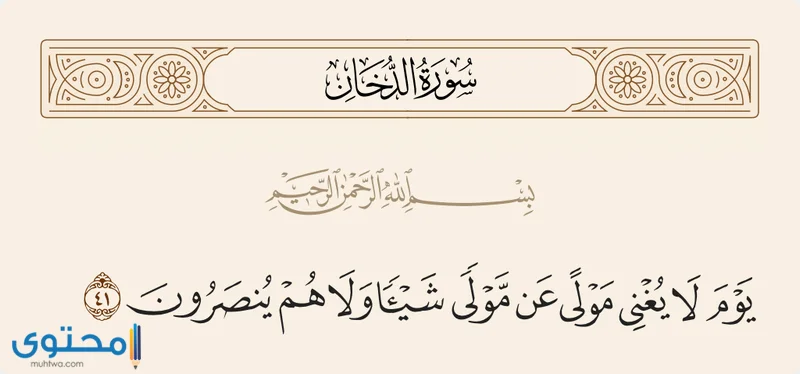 سُورَةُ الدُّخَانِ
بِسْمِ اللَّهِ الرَّحْمَٰنِ الرَّحِيمِ
يَوْمَ لَا يُغْنِى مَوْلًى عَن مَّوْلًى شَيْـًٔا وَلَا هُمْ يُنصَرُونَ ٤١
محتوى
muhtwa.com